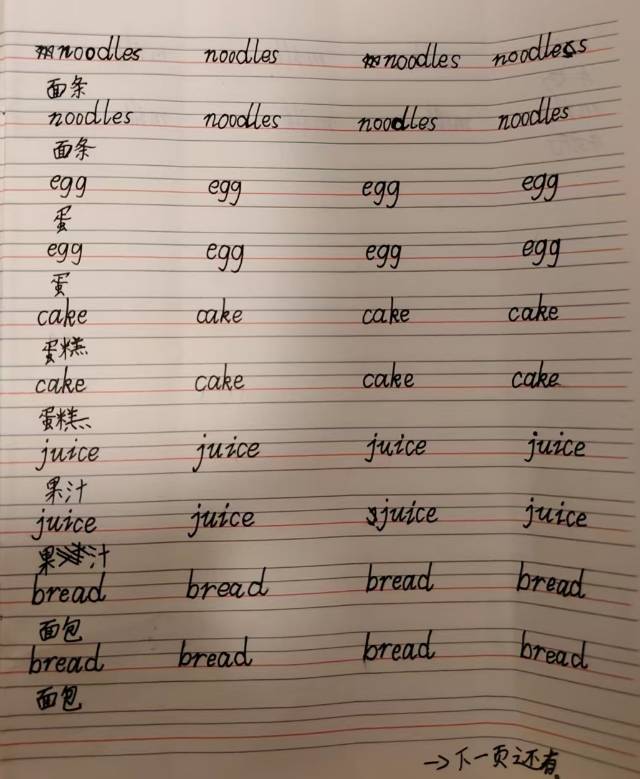 noodles noodles noodles noodles
面条
noodles noodles noodles noodles
面条
egg egg egg egg
蛋
egg egg egg egg
蛋
cake cake cake cake
蛋糕
cake cake cake cake
蛋糕
juice juice juice juice
果汁
juice juice juice juice
果汁
bread bread bread bread
面包
bread bread bread bread
面包
→下一页还有